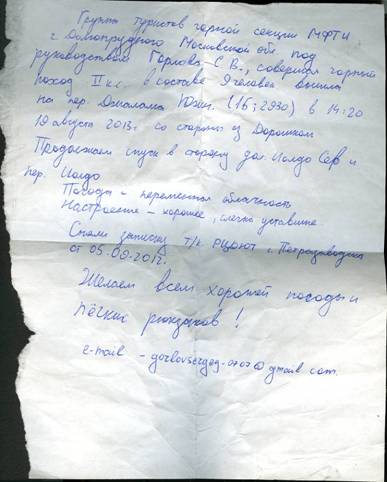 Группа туристов горной секции МФТИ
г. Долгопрудного Московской обл. под
руководством Горлова С.В., совершая горный
поход II к.с. в составе 9 человек взошла
на пер. Джалама Южн. (1Б; 2930) в 14:20
19 августа 2013г. со стороны из
Продолжаем спуск в сторону дол. Иолдо Сев и
пер. Иолдо
Погода - переменная облачность
Настроение - хорошее, слегка уставшие
Сняли записку т/к РЦДЮТ г. Петрозаводска
от 05.09.2012.
Желаем всем хорошей погоды и
лёгких рюкзаков!
e-mail - gorlovsergey.0707@gmail.com.